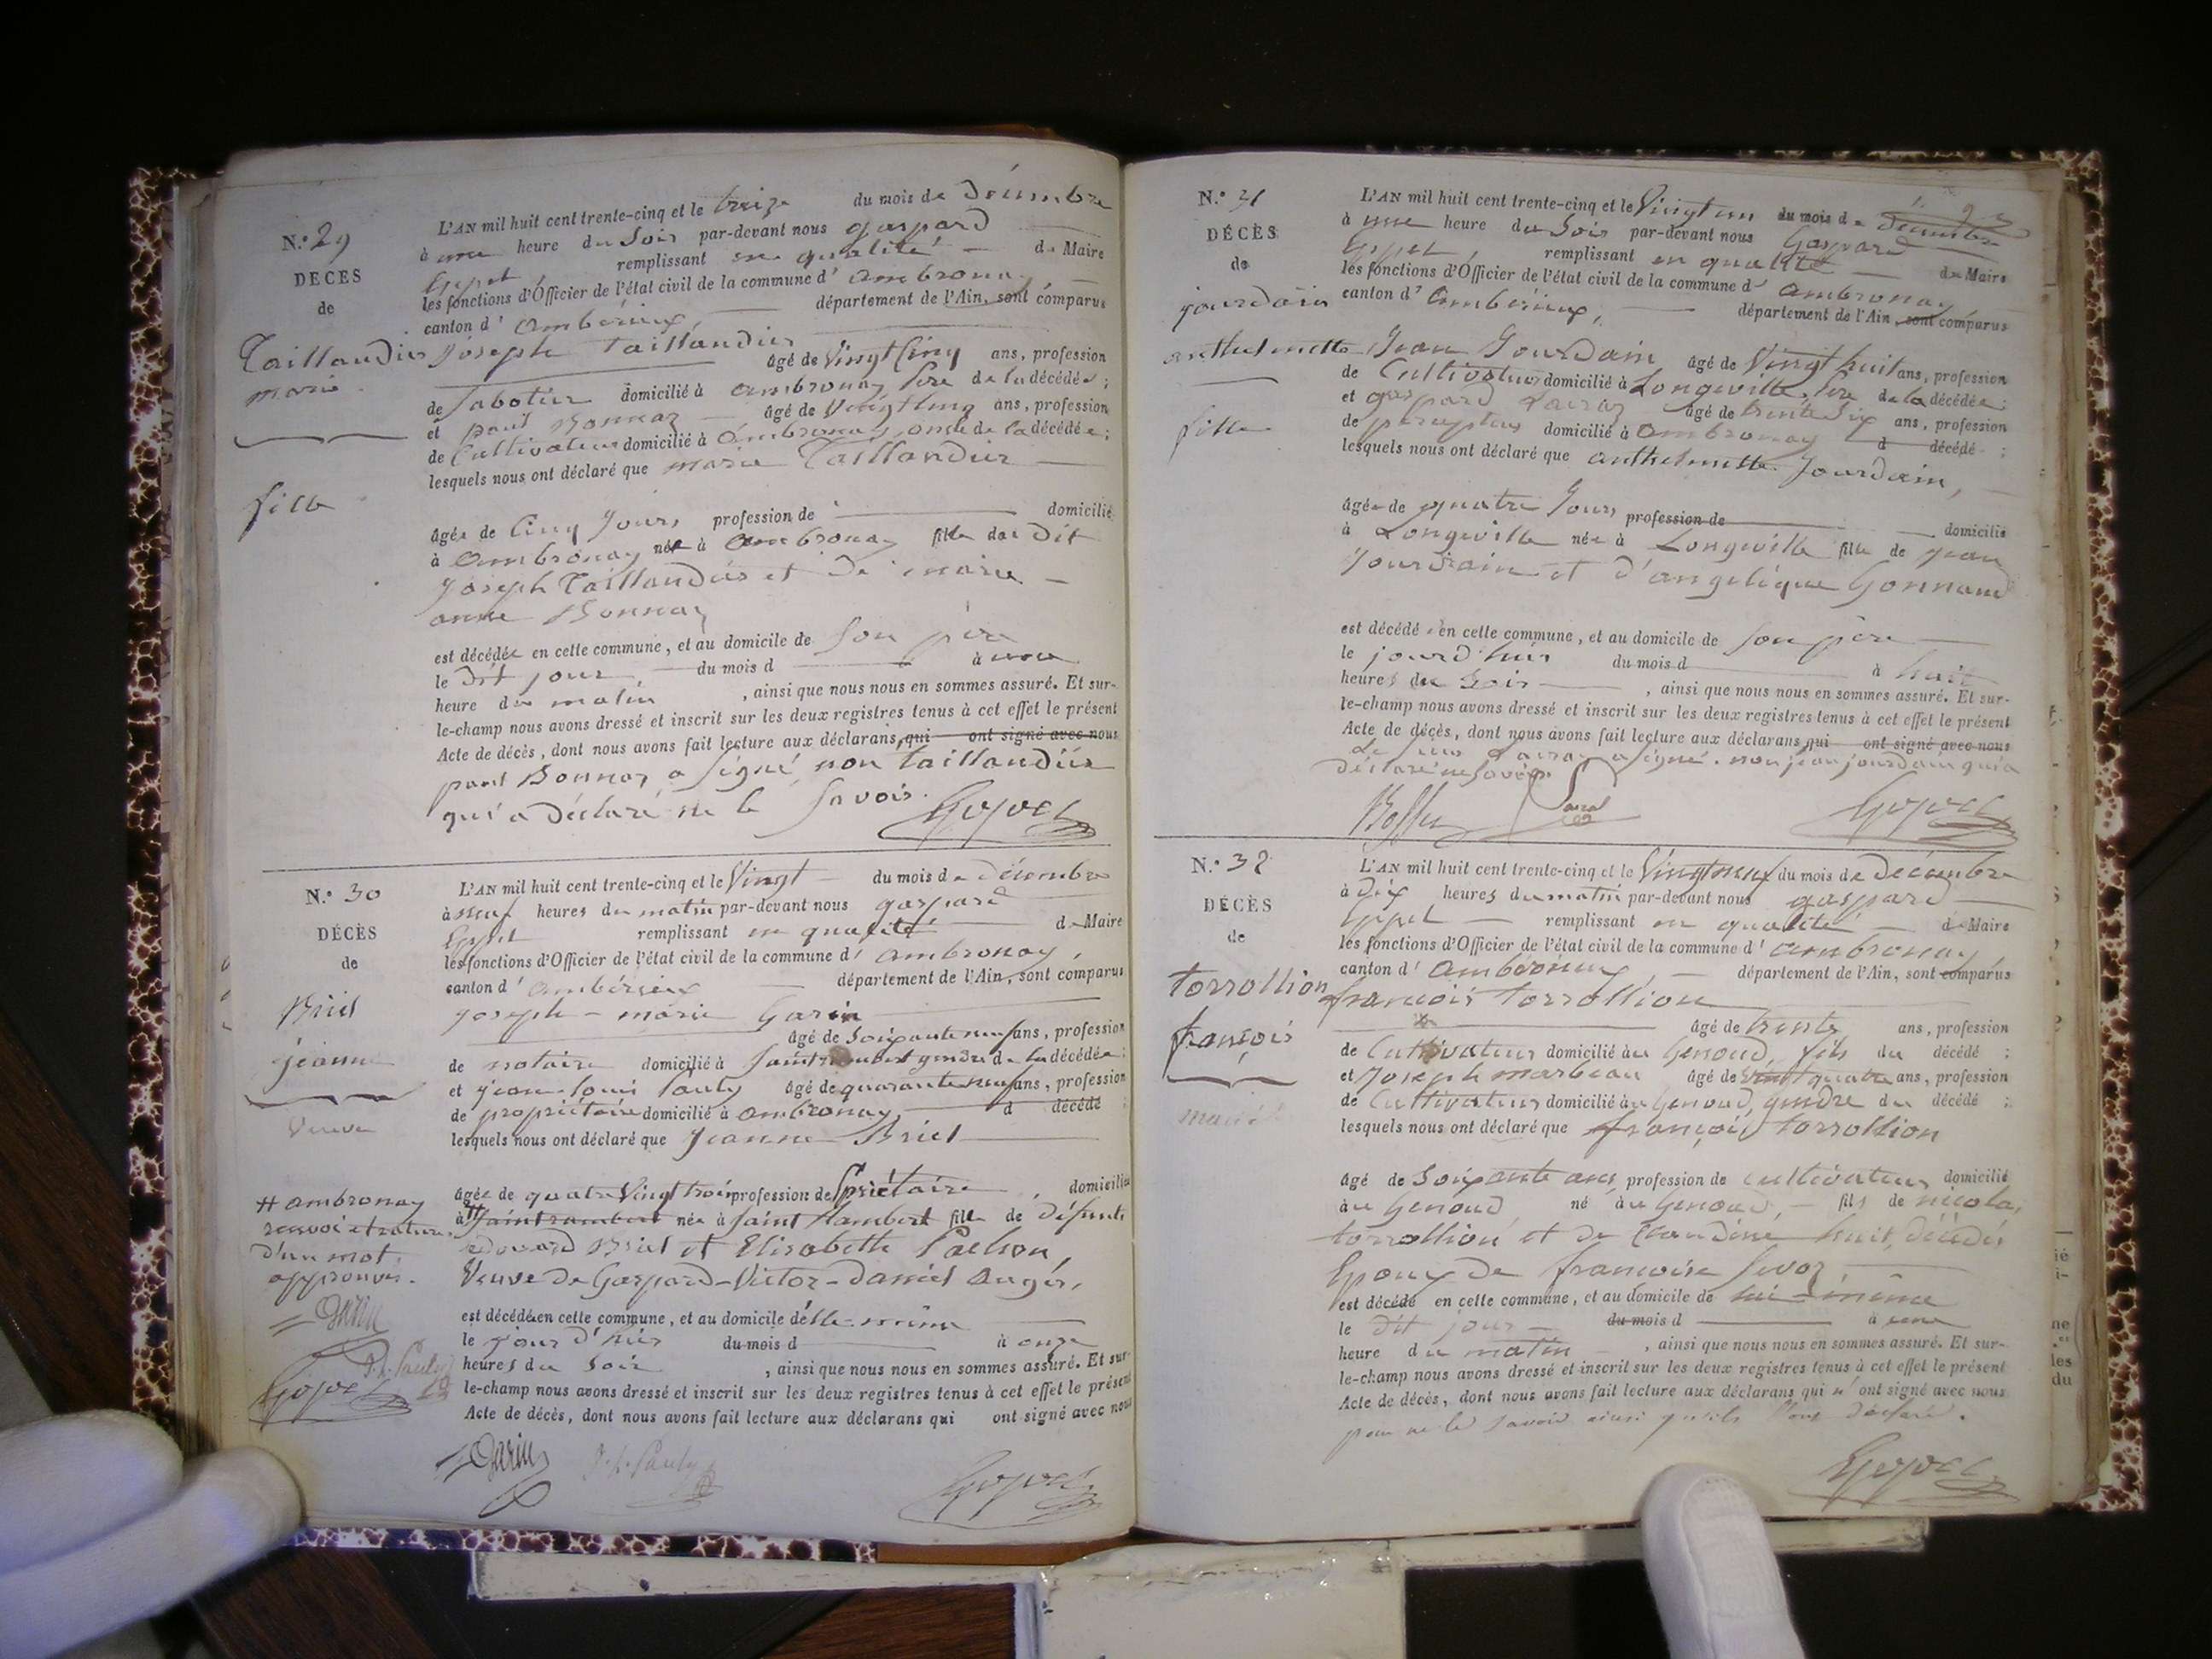 N.° 29
DÉCÈS
de
Taillandier
marie
fille
L'AN mil huit cent trente-cinq et le treize du mois de Décembre
à une heure du Soir par-devant nous gaspard
remplissant en qualité de Maire
les fonctions d'Officier de l'état civil de la commune d'ambronay
canton d'ambérieux, département de l'Ain, sont comparus
Joseph Taillandier
âgé de Vingt Cinq ans, profession
de Sabotier domicilié à ambronay père de la décédée ;
et paul Bonnaz âgé de Vingt Cinq ans, profession
de Cultivateur domicilié à Ambronay, oncle de la décédée ;
lesquels nous ont déclaré que marie Taillandier
âgée de Cinq Jours profession de domicilié
à Ambronay née à ambronay fille du Dit
Joseph Taillandier et De marie
anne Bonnaz
est décédée en cette commune, et au domicile de Son père
le Dit jour du mois d à une
heure du matin, ainsi que nous nous en sommes assuré. Et sur-
le-champ nous avons dressé et inscrit sur les deux registres tenus à cet effet le présent
Acte de décès, dont nous avons fait lecture aux déclarans, qui ont signé avec nous
paul Bonnaz a Signé, non Taillandier
qui a Déclaré ne le Savoir.
N.° 30
DÉCÈS
de
Briel
jeanne
Veuve
# ambronay
renvoi et rature
d'un mot
approuvés.
Garin
J. L. Pauly
L'AN mil huit cent trente-cinq et le Vingt du mois de Décembre
à neuf heures du matin par-devant nous gaspard
remplissant en qualité de Maire
les fonctions d'Officier de l'état civil de la commune d'ambronay,
canton d'ambérieux département de l'Ain, sont comparus
Joseph-marie Garin
âgé de Soixante neuf ans, profession
de notaire domicilié à Saint rambert gendre de la décédée ;
et jean-louis Pauly âgé de quarante neuf ans, profession
de propriétaire domicilié à ambronay, d décédé ;
lesquels nous ont déclaré que Jeanne Briel
âgée de quatre Vingt trois profession de domiciliée
à # Saint rambert née à Saint Rambert fille de Défunts
edouard Briel et Elisabeth
Veuve De Gaspard-Victor-Daniel Augér,
est décédée en cette commune, et au domicile d'elle-même
le jour d'hier du mois d à onze
heures du Soir, ainsi que nous nous en sommes assuré. Et sur-
le-champ nous avons dressé et inscrit sur les deux registres tenus à cet effet le présent
Acte de décès, dont nous avons fait lecture aux déclarans qui ont signé avec nous
Garin J. L. Pauly
N.° 31
DÉCÈS
de
jourdain
anthelmette
fille
L'AN mil huit cent trente-cinq et le Vingt un du mois de Décembre
à une heure du Soir par-devant nous Gaspard
remplissant en qualité de Maire
les fonctions d'Officier de l'état civil de la commune d'ambronay
canton d'ambérieux, département de l'Ain, sont comparus
Jean Jourdain âgé de Vingt huit ans, profession
de Cultivateur domicilié à Longeville, père de la décédée ;
et gaspard âgé de trente Six ans, profession
de percepteur domicilié à ambronay d décédé ;
lesquels nous ont déclaré que anthelmette Jourdain,
âgée de quatre Jours profession de domicilié
à Longeville née à Longeville fille de jean
Jourdain et d'angélique Gonnand
est décédée en cette commune, et au domicile de Son père
le jour d'hier du mois d à huit
heures du Soir, ainsi que nous nous en sommes assuré. Et sur-
le-champ nous avons dressé et inscrit sur les deux registres tenus à cet effet le présent
Acte de décès, dont nous avons fait lecture aux déclarans qui ont signé avec nous
a signé. non jean jourdain qui a
Déclaré ne Savoir
N.° 32
DÉCÈS
de
torrollion
françois
marié
L'AN mil huit cent trente-cinq et le Vingt neuf du mois de Décembre
à Dix heures du matin par-devant nous gaspard
remplissant en qualité de Maire
les fonctions d'Officier de l'état civil de la commune d'ambronay
canton d'Ambérieux, département de l'Ain, sont comparus
françois torrollion
âgé de trente ans, profession
de Cultivateur domicilié au Genoud, fils du décédé ;
et Joseph marbeau âgé de vingt quatre ans, profession
de Cultivateur domicilié au Genoud, gendre du décédé ;
lesquels nous ont déclaré que françois torrollion
âgé de Soixante ans, profession de cultivateur domicilié
au Genoud né au Genoud, fils de nicolas
torrollion et de Claudine huit, Décédés
Epoux De françoise
est décédé en cette commune, et au domicile de lui-même
le Dit jour du mois d à une
heure du matin, ainsi que nous nous en sommes assuré. Et sur-
le-champ nous avons dressé et inscrit sur les deux registres tenus à cet effet le présent
Acte de décès, dont nous avons fait lecture aux déclarans qui n'ont signé avec nous
pour ne le savoir ainsi qu'ils l'ont déclaré.